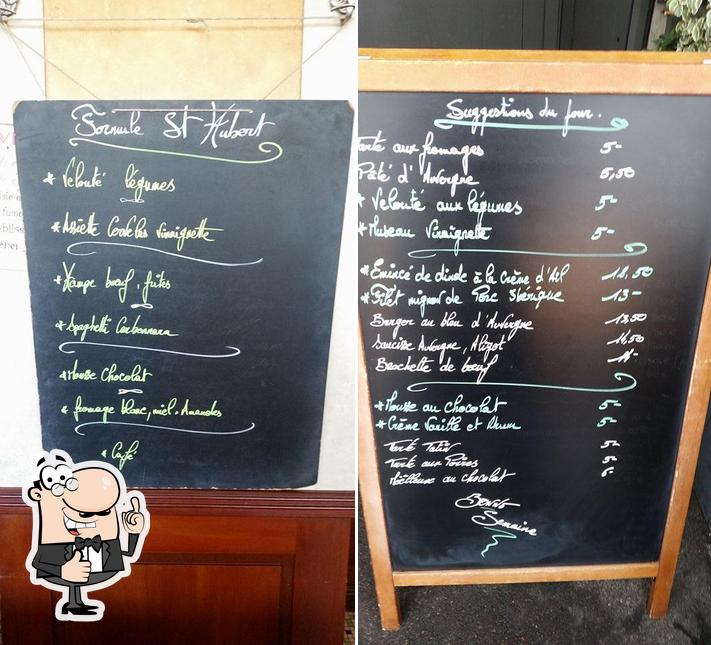 Formule St Hubert
* Velouté légumes
* Assiette Cervelas Vinaigrette
* Hampe bœuf, frites
* Spaghetti Carbonnara
* Mousse Chocolat
* fromage blanc, miel. Amandes
* Café
Suggestions du jour.
Tarte aux fromages 5-
Pâté d'Auvergne 5,50
* Velouté aux légumes 5-
* Museau Vinaigrette 5-
* Emincé de dinde à la Crème d'Ail 12,50
* Filet mignon de Porc Ibérique 13-
Burger au bleu d'Auvergne 13,50
Saucisse Auvergne, Aligot
Brochette de bœuf
* Mousse au chocolat 5-
* Crème Vanille et Rhum 5-
Tarte Tatin 5-
Tarte aux Poires 5-
Moëlleux au chocolat 6-
Bonne
Semaine